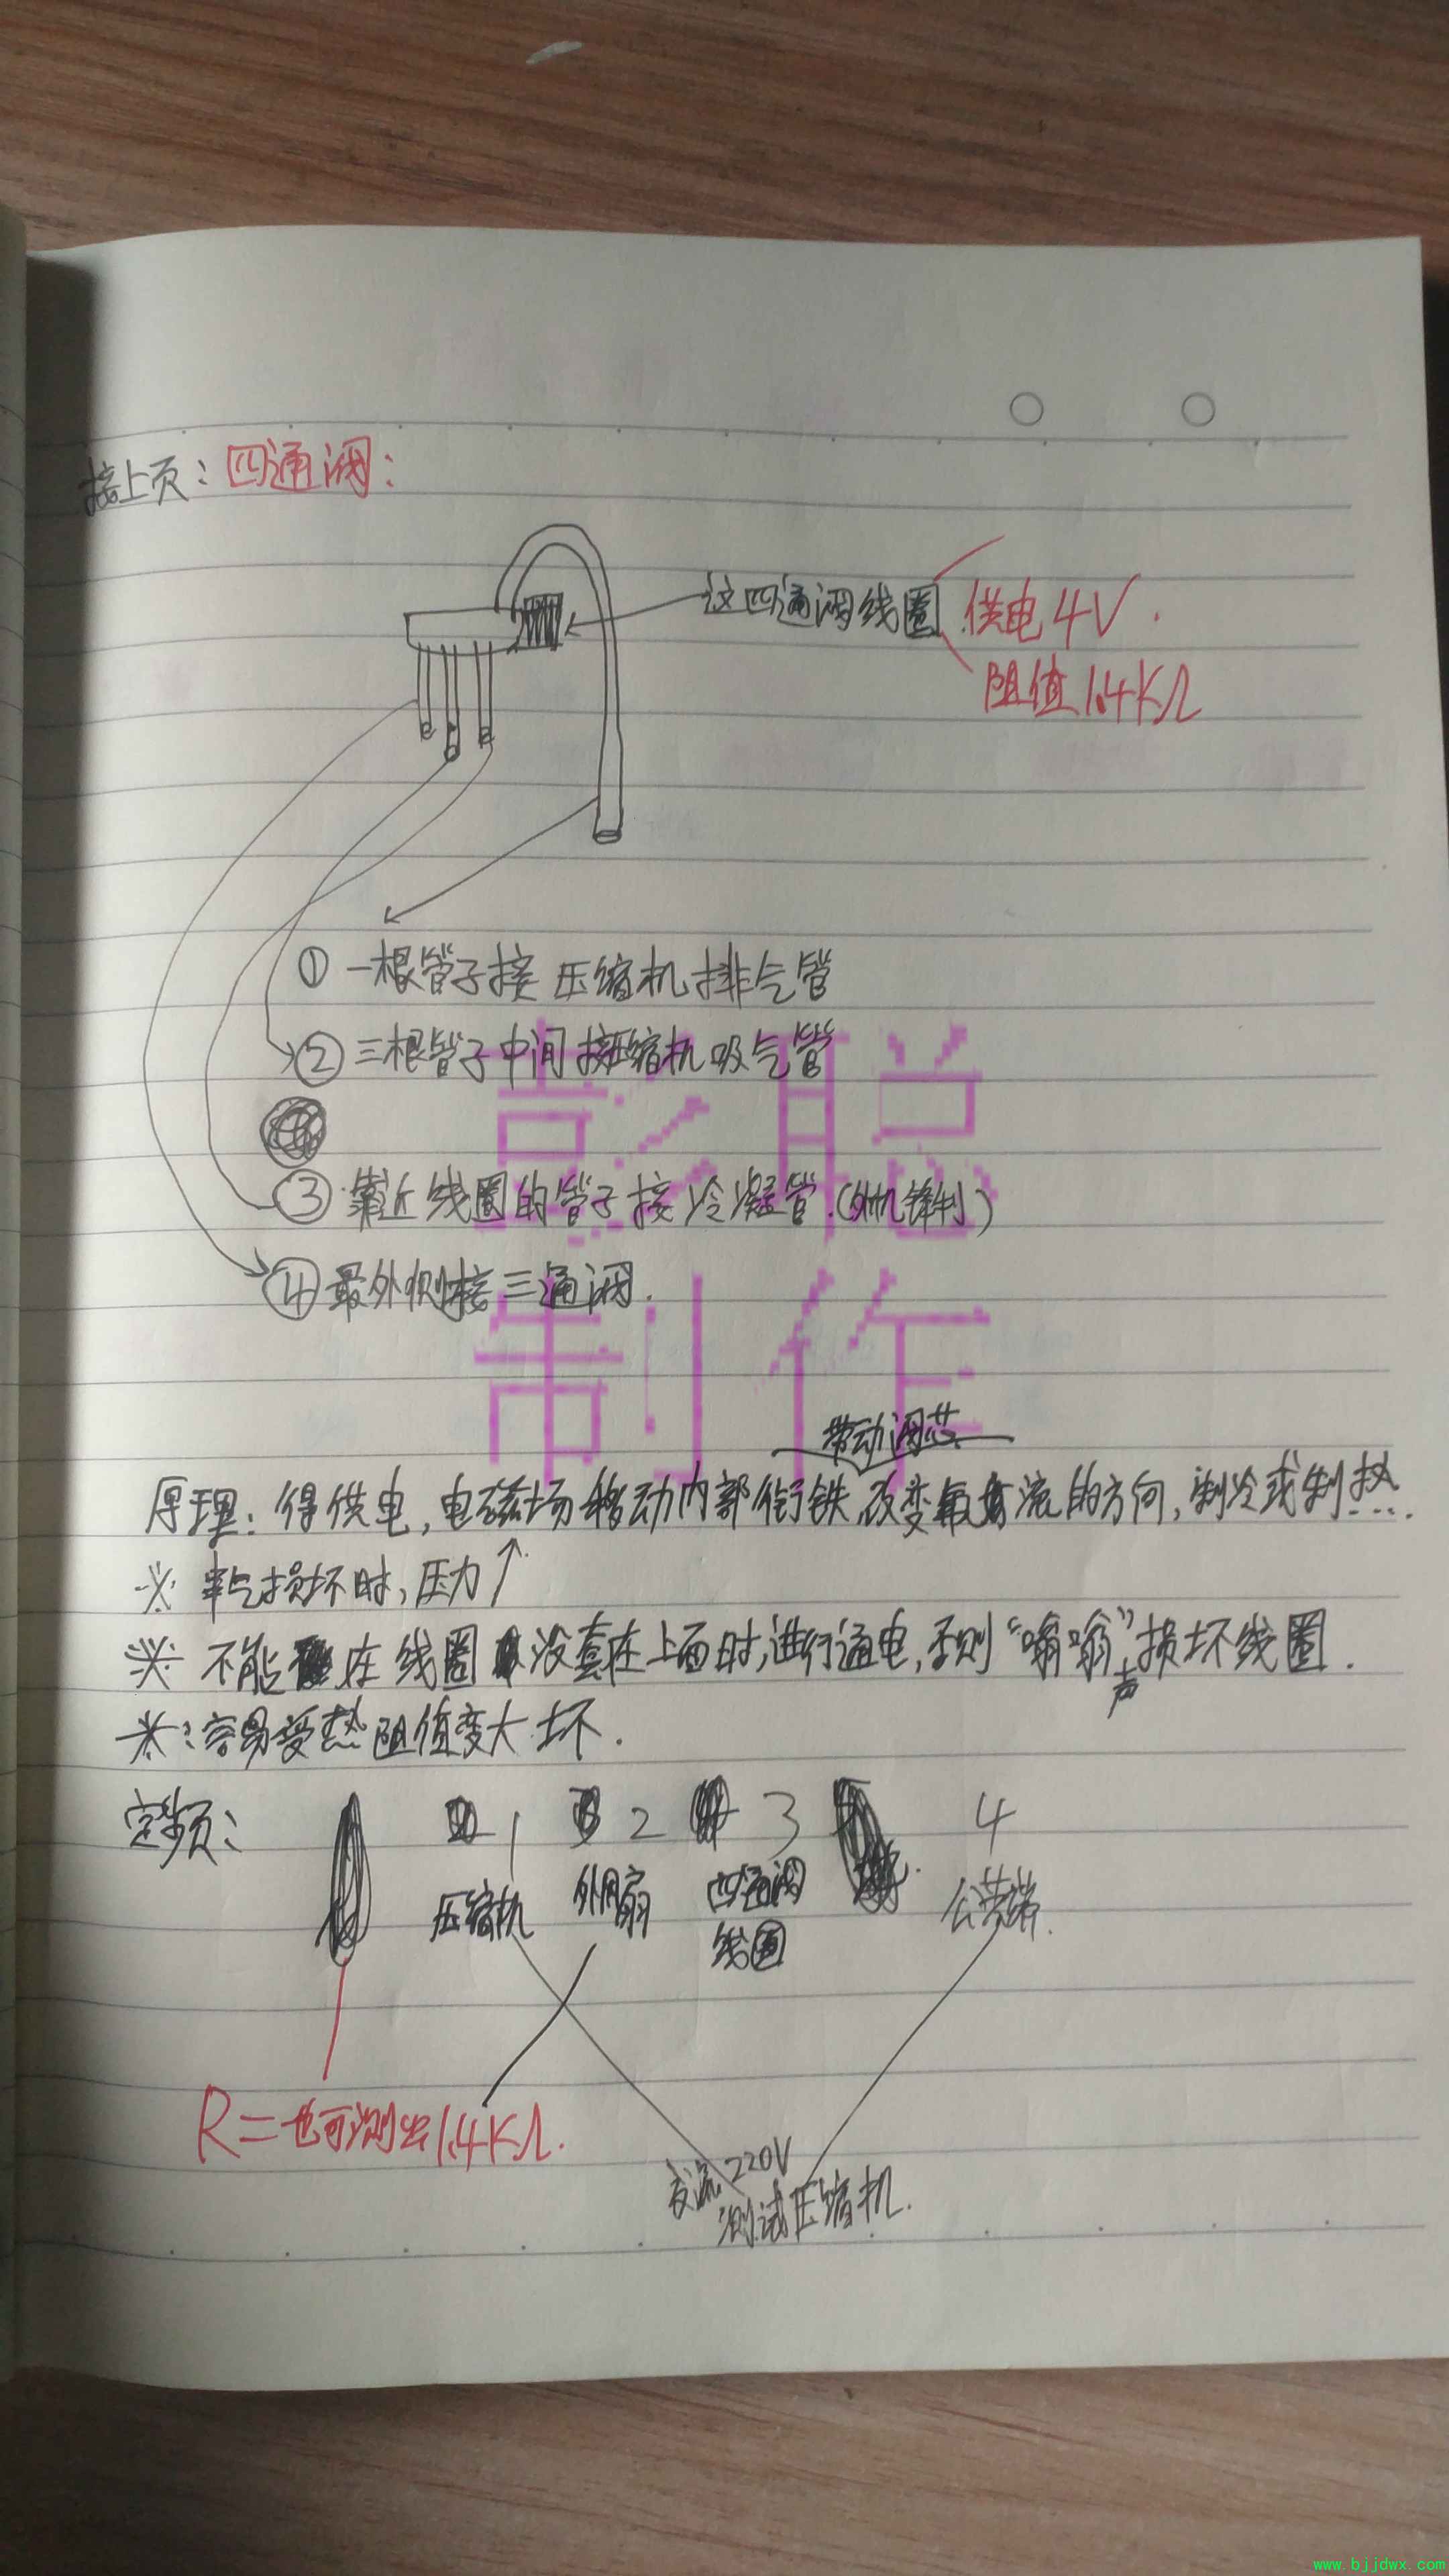 接上页：四通阀：
这四通阀线圈 供电4V.
阻值1.4KΩ
① 一根管子接压缩机排气管
② 三根管子中间接压缩机吸气管
③ 靠近线圈的管子接冷凝管.(外机
④ 最外侧接三通阀.
彭聪
制作
带动阀芯
原理：得供电,电磁场移动内部衔铁,改变 流的方向,制冷或制热....
※ 串气损坏时,压力↑
※ 不能在线圈没套在上面时,进行通电,否则“嗡嗡”声损坏线圈.
※：容易受热阻值变大坏.
定频： 1 2 3 4
压缩机 外风扇 四通阀线圈 公共端.
R=也可测出1.4KΩ.
交流220V
测试压缩机.
www.bjjdwx.com